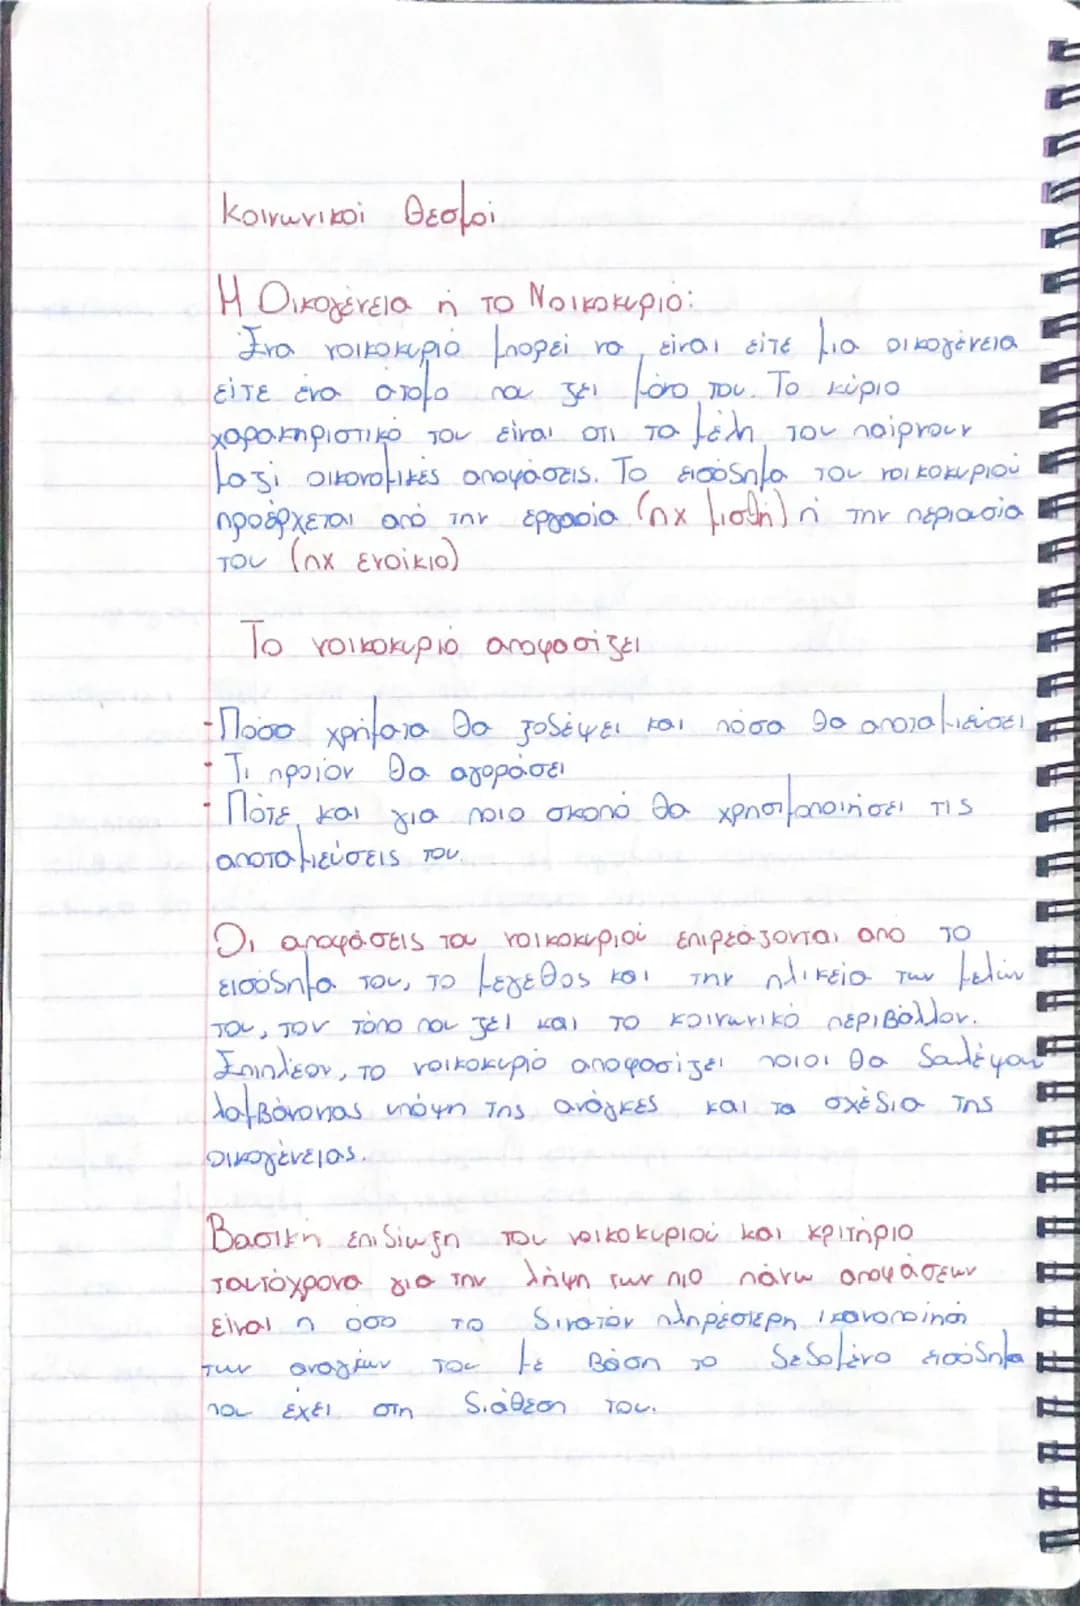 Κοινωνικοί Θεσμοί
Η Οικογένεια ή το Νοικοκυριό:
Ένα νοικοκυριό μπορεί να είναι είτε μια οικογένεια
είτε ένα άτομο που ζει μόνο του. Το κύριο
χαρακτηριστικό του είναι ότι τα μέλη του παίρνουν
μαζί οικονομικές αποφάσεις. Το εισόδημα του νοικοκυριού
προέρχεται από την εργασία (πχ μισθή) ή την περιασία
του (πχ ενοίκιο)
Το νοικοκυριό αποφασίζει
-Πόσα χρήματα θα ξοδέψει και πόσα θα αποταμιεύσει
- Τι προϊόν θα αγοράσει
- Πότε και για ποιο σκοπό θα χρησιμοποιήσει τις
αποταμιεύσεις του.
Οι αποφάσεις του νοικοκυριού επιρεάζονται από το
εισόδημα του, το μέγεθος και την ηλικεία των μελών
του, τον τόπο που ζει και το κοινωνικό περιβάλλον.
Επιπλέον, το νοικοκυριό αποφασίζει ποιοι θα δαλέψουν
λαμβάνοντας υπόψη της ανάγκες και τα σχέδια της
οικογένειας.
Βασική επιδίωξη του νοικοκυριού και κριτήριο
ταυτόχρονα για την λήψη των πιο πάνω αποφάσεων
είναι η όσο το δινατόν πληρέστερη ικανοποίηση
των αναγκών του με βάση το δεδομένο εισόδημα
που έχει στη διάθεση του.